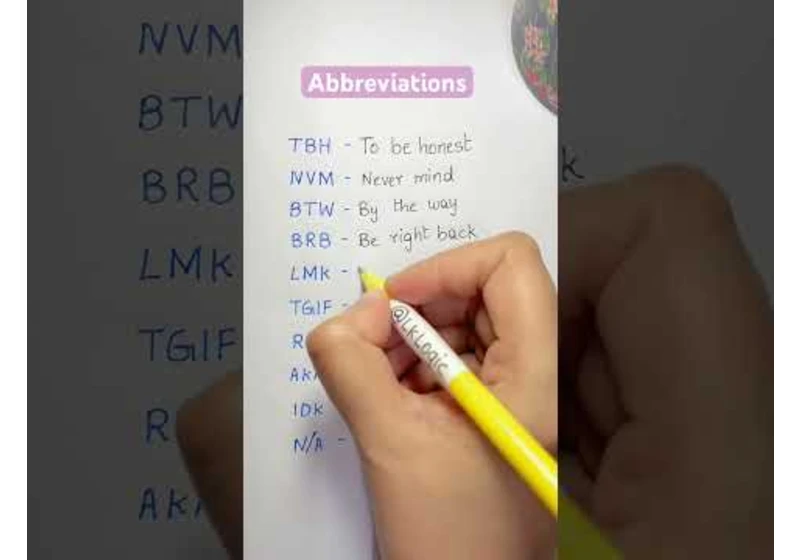 Abbreviations
TBH - To be honest
NVM - Never mind
BTW - By the way
BRB - Be right back
LMK -
TGIF -
R
AK
IDK
N/A -
@LKLogic
NVM
BTW
BRB
LMK
TGIF
R
AK
k